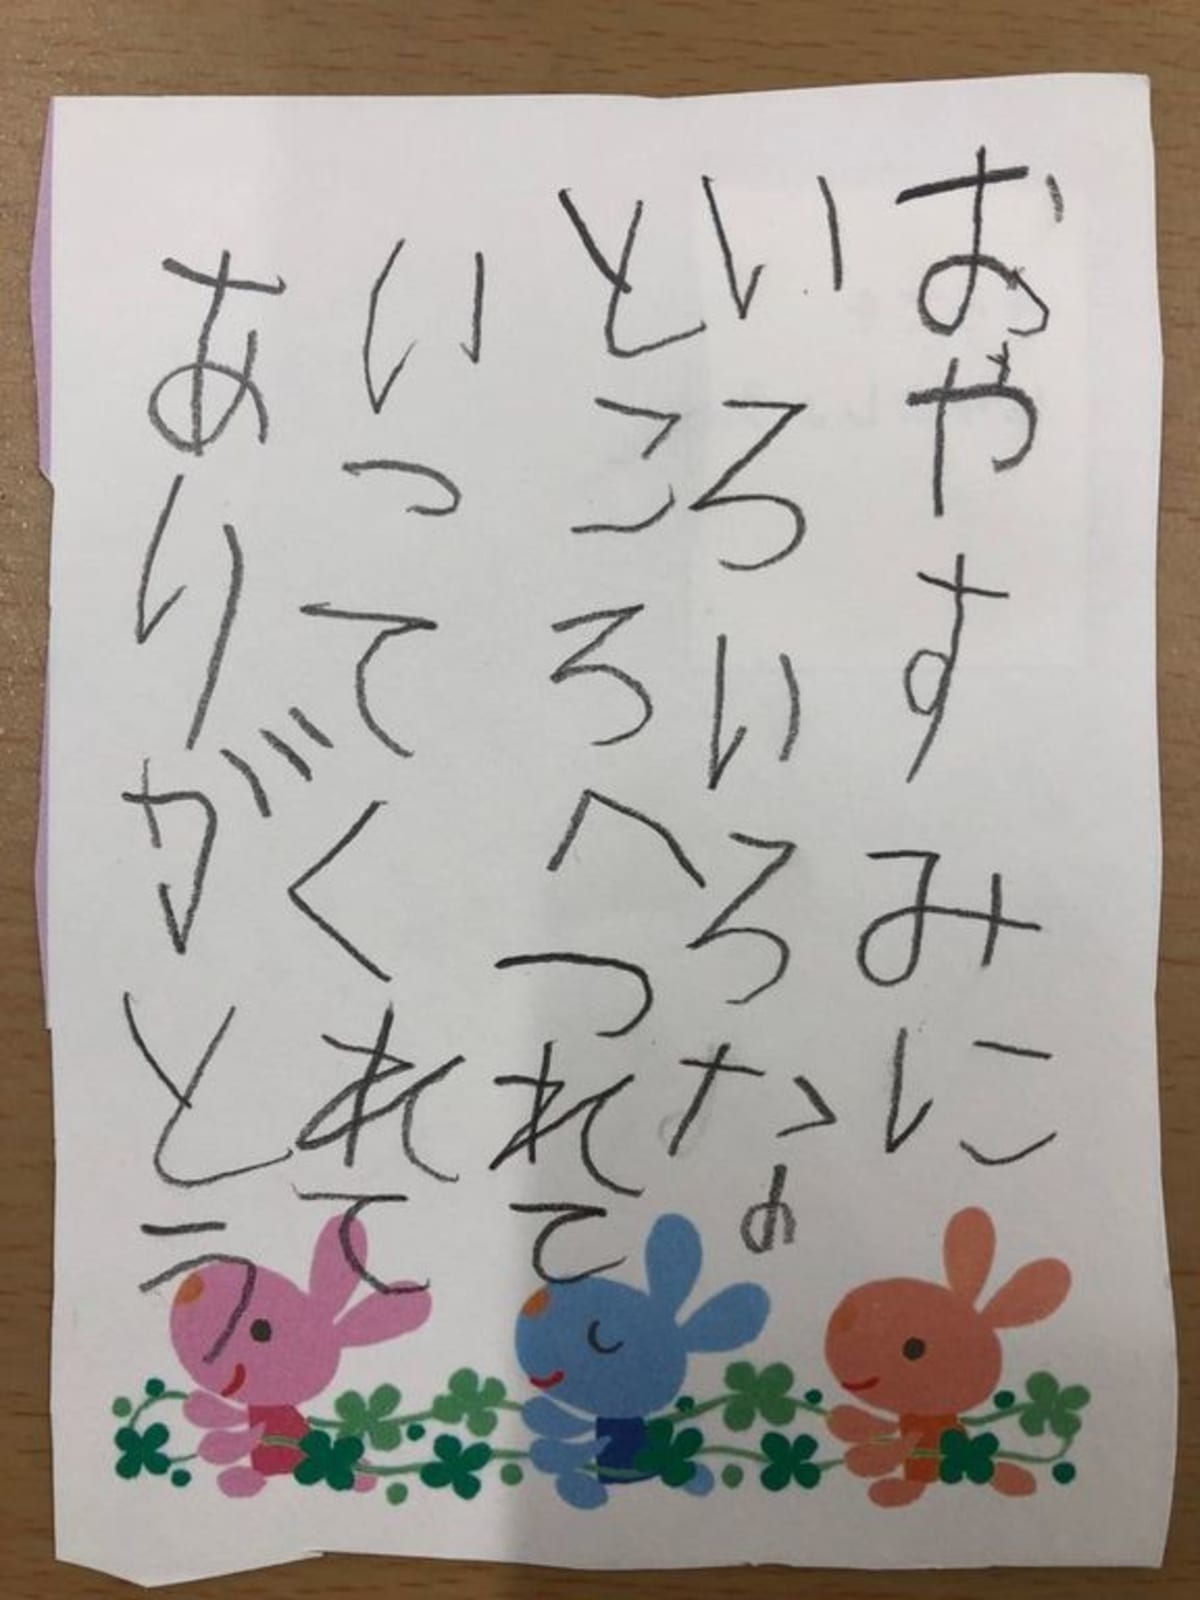 おやすみに
いろいろなよ
ところへつれて
いってくれて
ありがとう